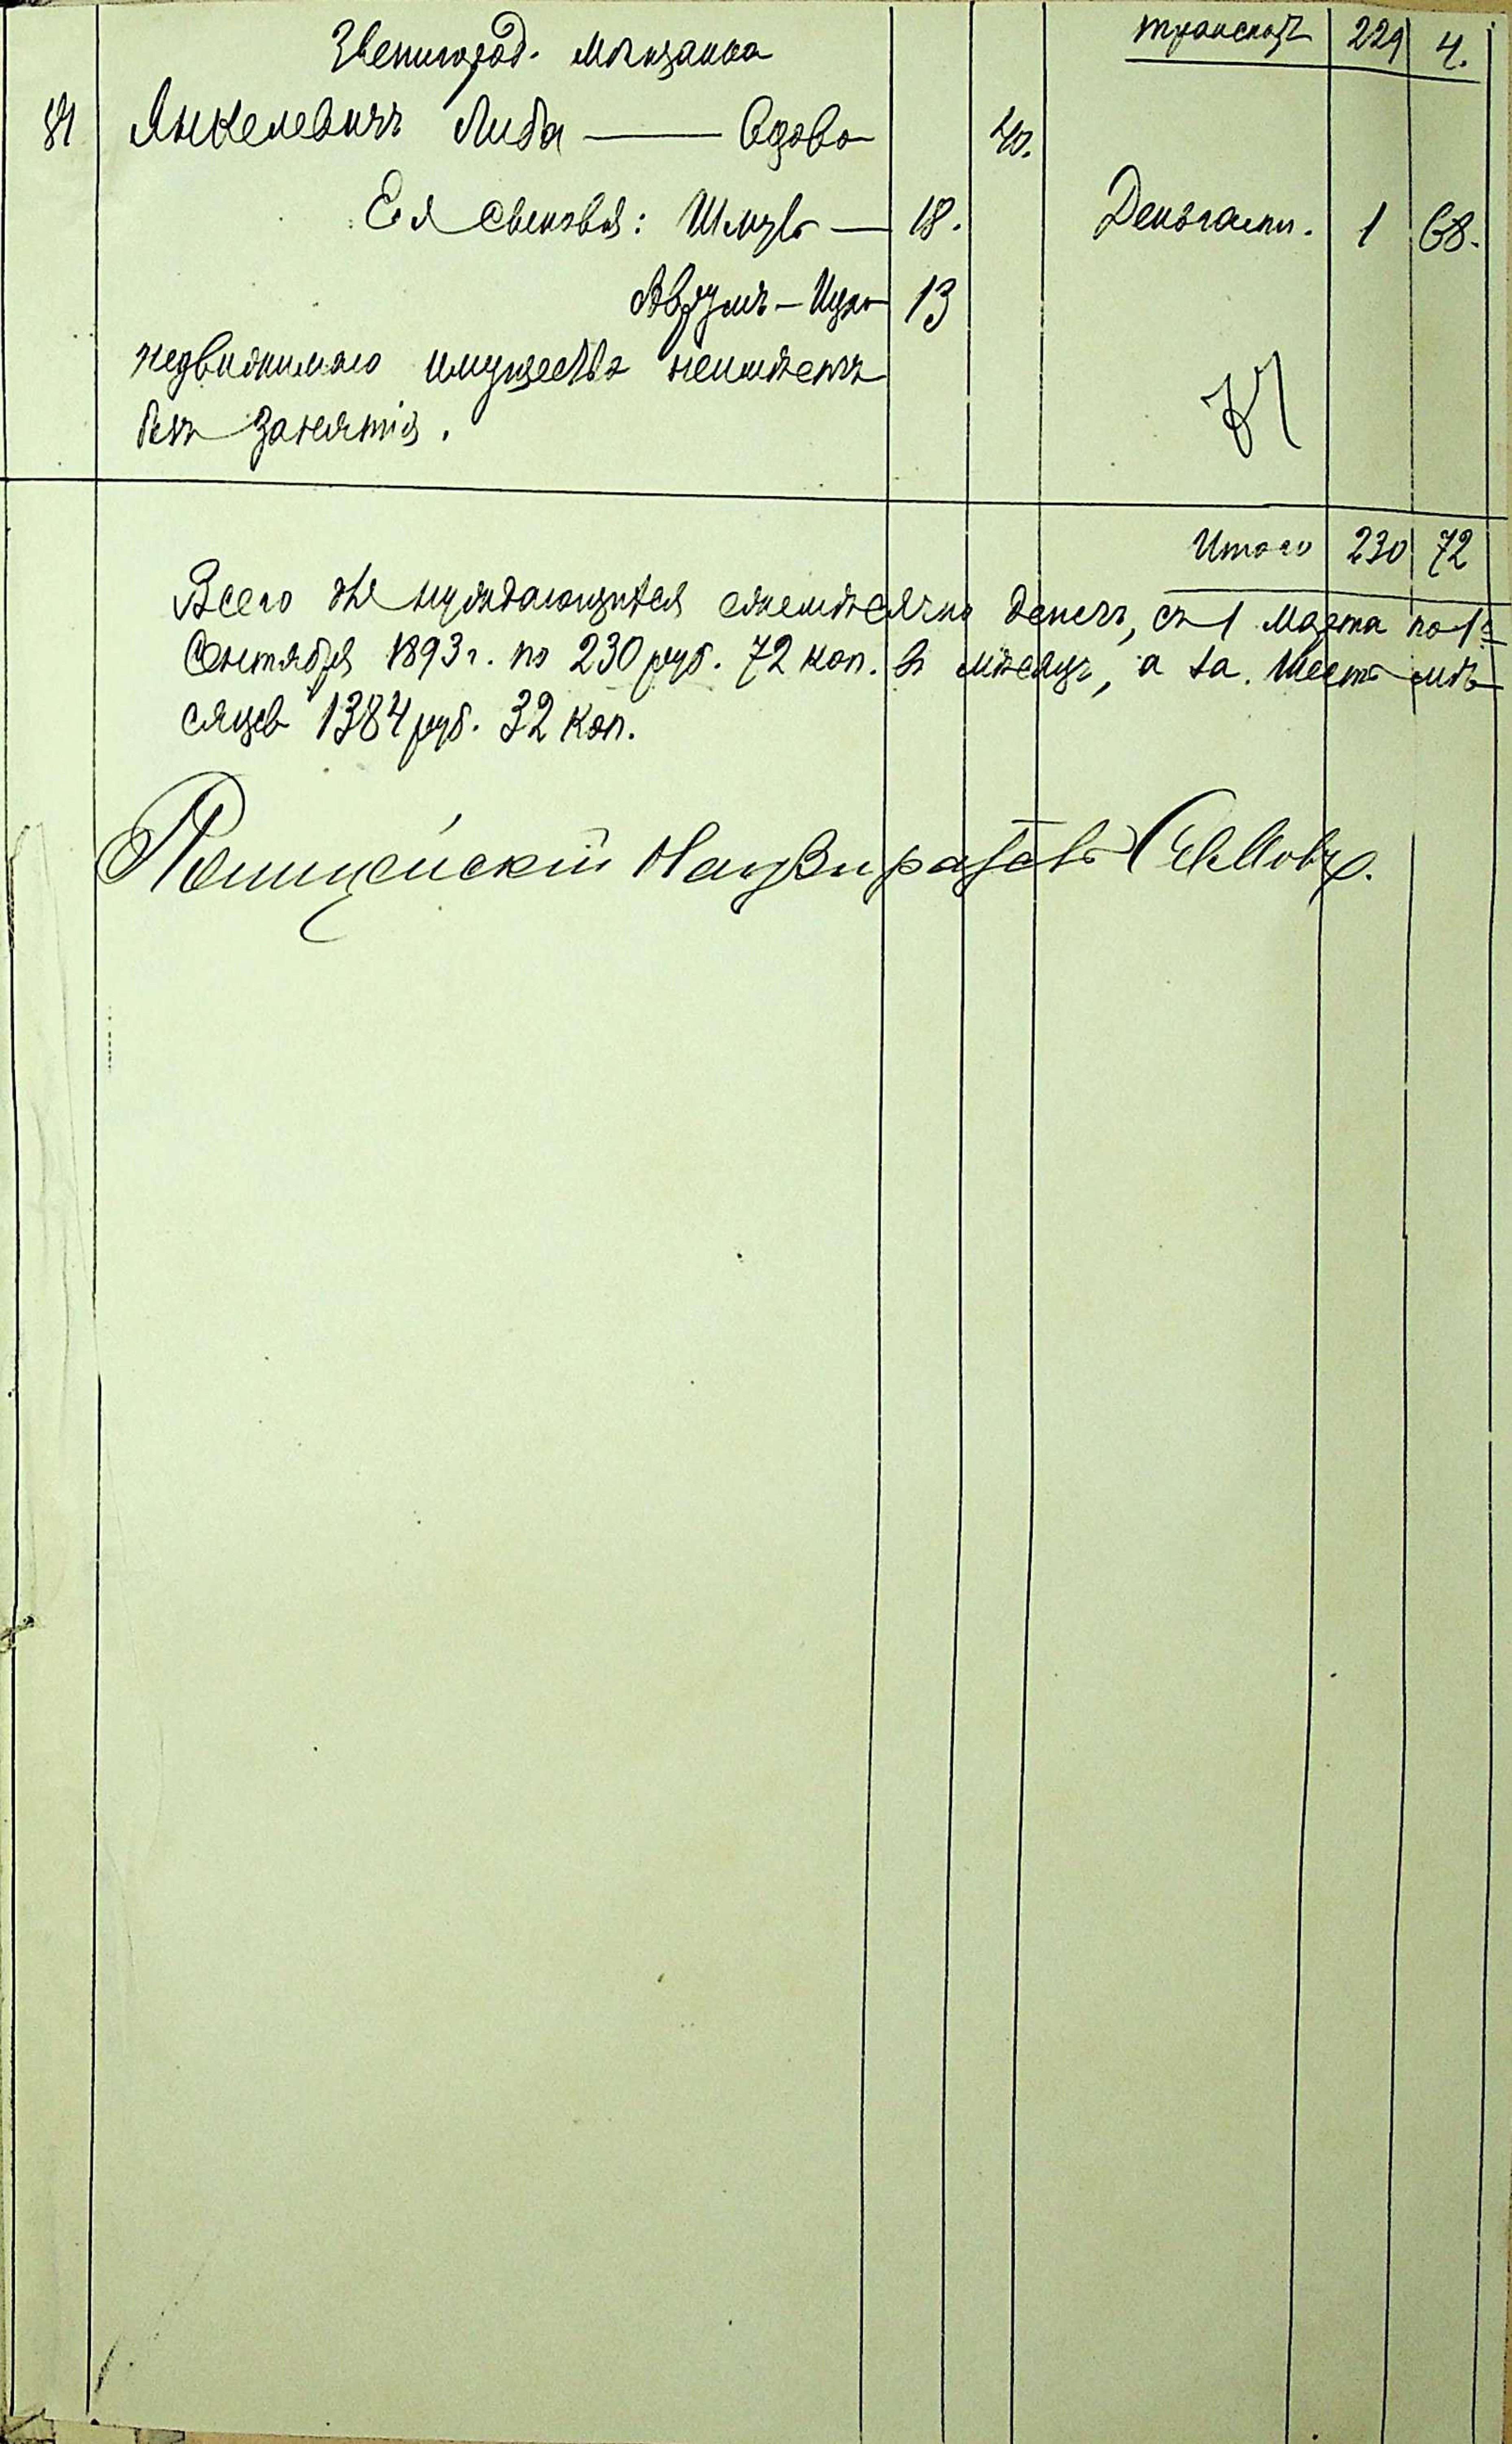 Звенигород. мѣщанка транспортъ 229 4.
81 Янкелевичъ Либа — вдова 40.
Ея сыновья: Шмуль — 18. Деньгами. 1 68.
Аврумъ-Ицко 13
недвижимаго имущества неимѣетъ
безъ занятія.
Итого 230 72
Всего для нуждающихся ежемѣсячно денегъ, съ 1 марта по 1е
Сентября 1893 г. по 230 руб. 72 коп. въ мѣсяцъ, а за шесть мѣ-
сяцев 1384 руб. 32 коп.
Полицейскій Надзиратель